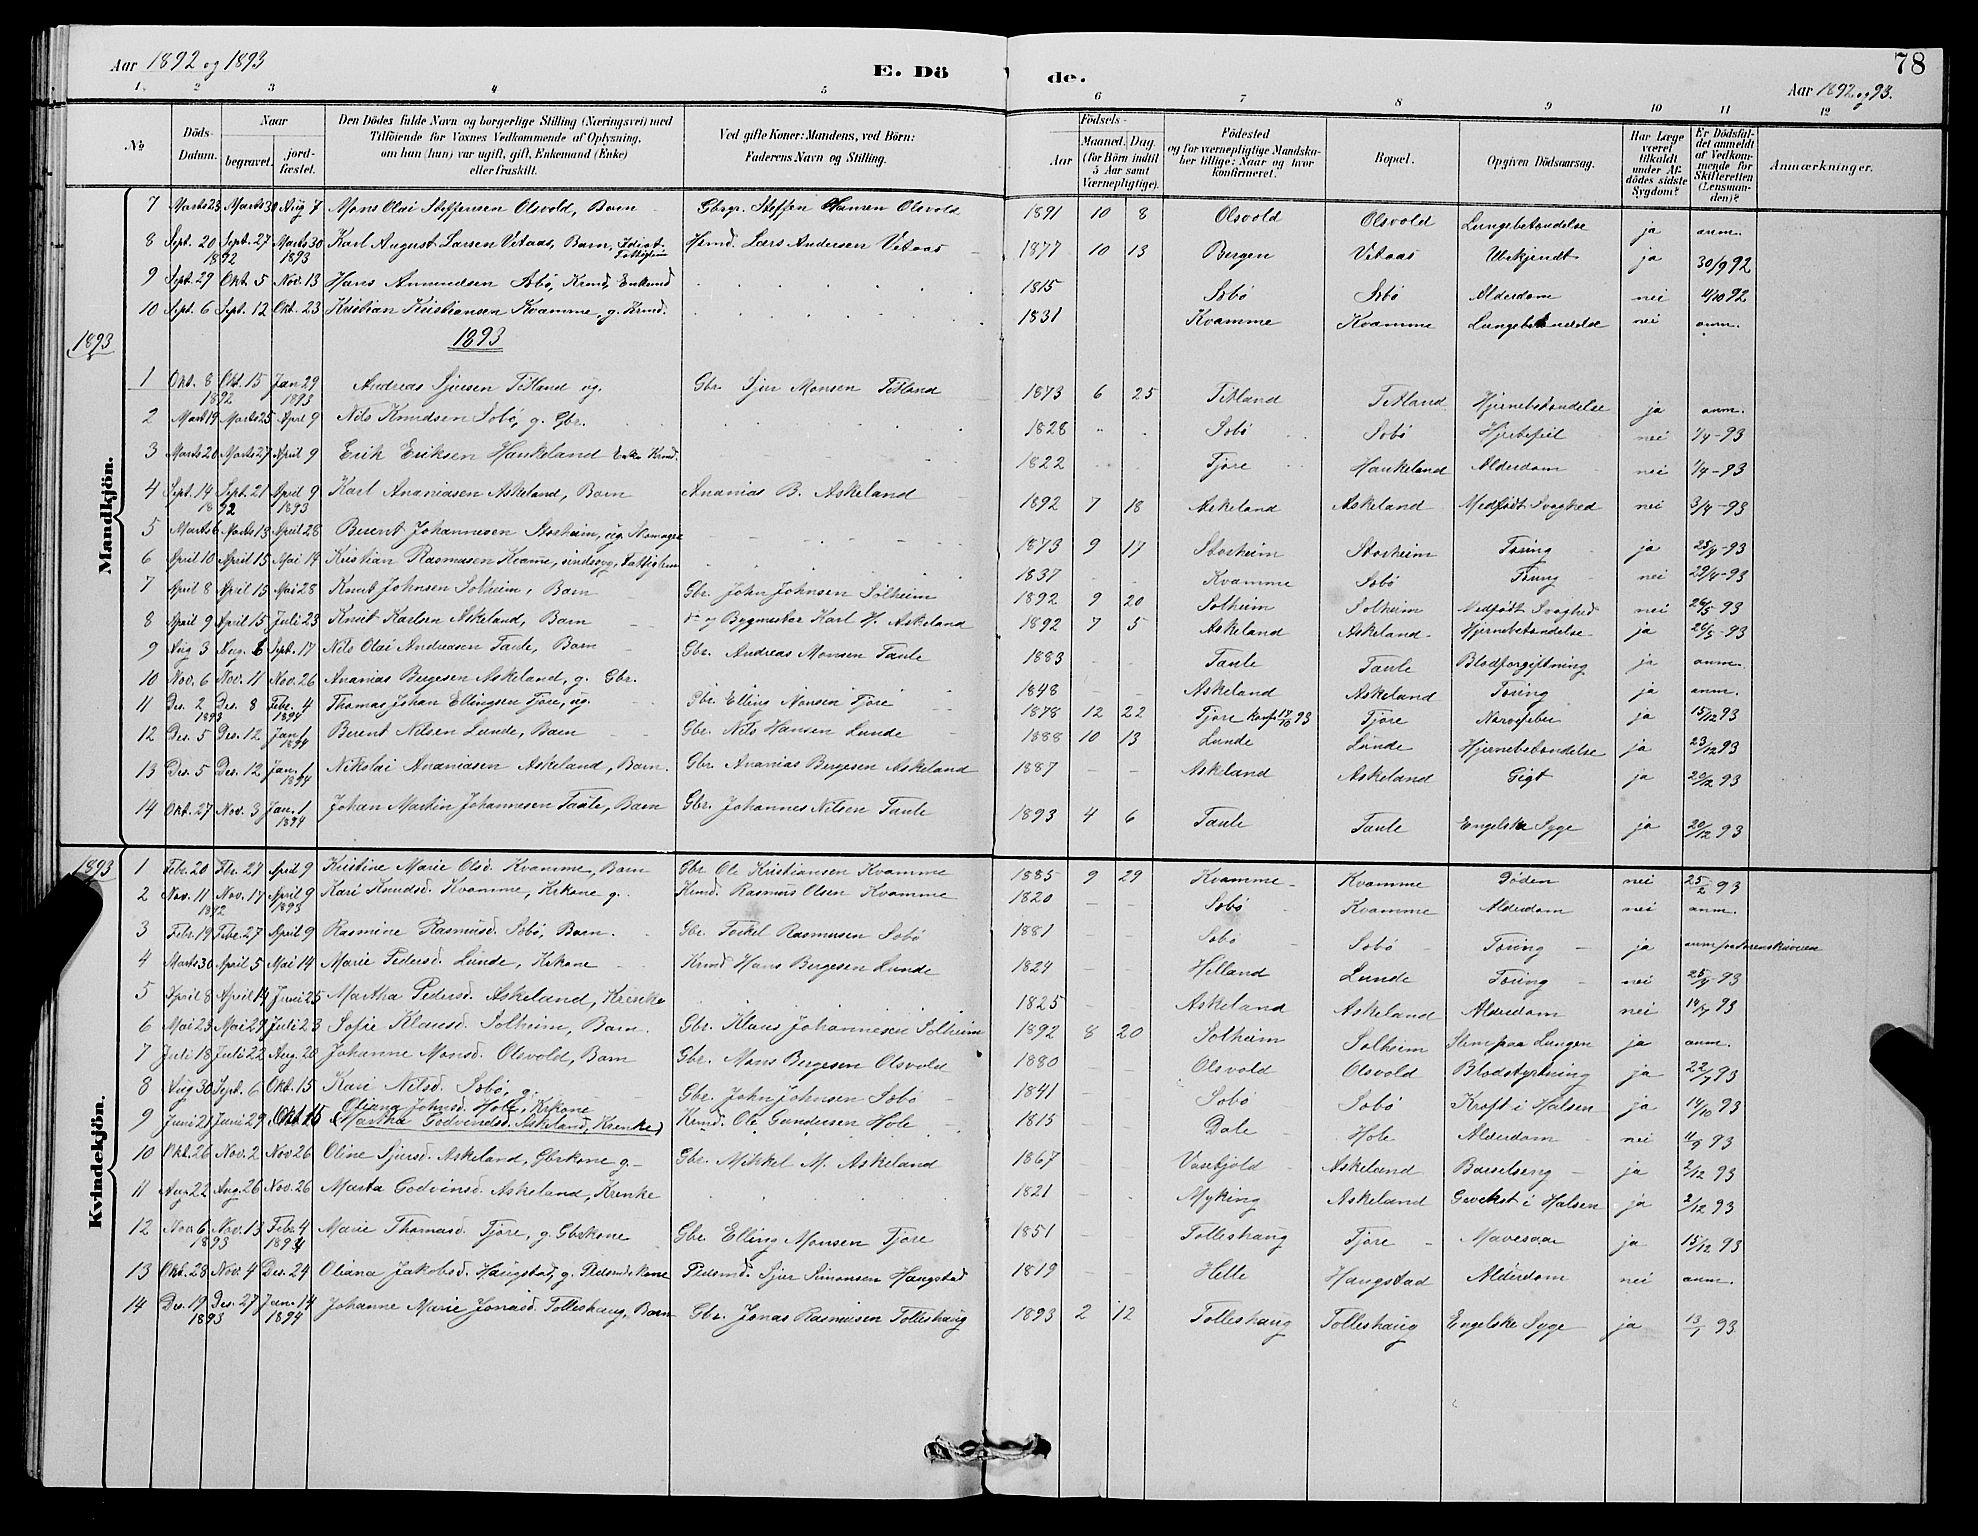 78
Aar 1892 og 1893
E. Dö de.
Aar 1892 og 93.
1. 2 3 4 5 6 7 8 9 10 11 12
No
Döds-Datum.
Naar
begravet.
jord-fæstet.
Den Dödes fulde Navn og borgerlige Stilling (Næringsvei) med Tilföiende for Voxnes Vedkommende af Oplysning, om han (hun) var ugift, gift, Enkemand (Enke) eller fraskilt.
Ved gifte Koner: Mandens, ved Börn: Faderens Navn og Stilling.
Födsels-
Aar
Maaned. Dag
(for Börn indtil 5 Aar samt Værnepligtige).
Födested og for værnepligtige Mandskaber tillige: Naar og hvor konfirmeret.
Bopæl.
Opgiven Dödsaarsag.
Har Læge været tilkaldt under Afdödes sidste Sygdom?
Er Dödsfaldet anmeldt af Vedkommende for Skifteretten (Lensmanden)?
Anmærkninger.
Mandkjön.
7 Marts 23 Marts 30 Aug 7 Mons Olai Steffensen Olsvold, Barn Gbrgr. Steffen Hansen Olsvold 1891 10 8 Olsvold Olsvold Lungebetændelse ja anm.
8 Sept. 20 1892 Sept. 27 Marts 30 1893 Karl August Larsen Vetaas, Barn, Idiot. Fattiglem Hsmd. Lars Andersen Vetaas 1877 10 13 Bergen Vetaas Ubekjendt ja 30/9 92
9 Sept. 29 Okt. 5 Nov. 13 Hans Amundsen Sobö, Krmd, Enkemd 1815 Sobö Sobö Alderdom nei 4/10 92
10 Sept. 6 Sept. 12 Okt. 23 Kristian Kristiansen Kvamme, g. Krmd. 1831 Kvamme Kvamme Lungebetændelse nei anm.
1893
1893
1 Okt. 8 1892 Okt. 15 Jan 29 1893 Andreas Sjursen Titland ug. Gbr. Sjur Monsen Titland 1873 6 25 Titland Titland Hjernebetændelse ja anm.
2 Mart 19 Marts 25 April 9 Nils Knudsen Sobö, g. Gbr. 1828 Sobö Sobö Hjertefeil nei 1/4-93
3 Marts 20 Marts 27 April 9 Erik Eriksen Haukeland Krmd. 1822 Tjore Haukeland Alderdom nei 1/4-93
4 Sept. 14 1892 Sept. 21 April 9 1893 Karl Ananiasen Askeland, Barn Ananias B. Askeland 1892 7 18 Askeland Askeland Medfödt Svaghed nei 3/4-93
5 Marts 6 Marts 13 April 28 Berent Johannesen Storheim, ug. 1873 9 17 Storheim Storheim Tæring ja 25/4-93
6 April 10 April 15 Mai 14 Kristian Rasmusen Kvamme, sindssyg, Fattiglem 1837 Kvamme Sobö Tæring nei 29/4-93
7 April 8 April 15 Mai 28 Knut Johnsen Solheim, Barn Gbr. John Johnsen Solheim 1892 9 20 Solheim Solheim Medfödt Svaghed nei 26/5 93
8 April 9 April 15 Juli 23 Knut Karlsen Askeland, Barn og Bygmester Karl H. Askeland 1892 7 5 Askeland Askeland Hjernebetændelse ja 26/5-93
9 Aug 3 Aug. 6 Sept. 17 Nils Olai Andreasen Taule, Barn Gbr. Andreas Monsen Taule 1883 Taule Taule Blodforgiftning ja anm.
10 Nov. 6 Nov. 11 Nov. 26 Ananias Bergesen Askeland, g. Gbr. 1848 Askeland Askeland Tæring ja anm.
11 Des. 2 1893 Des. 8 Febr. 4 1894 Thomas Johan Ellingsen Tjore, ug. Gbr. Elling Monsen Tjore 1878 12 22 Tjore konf 17/10 93 Tjore Nervefeber ja 15/12 93
12 Des. 5 Des. 12 Jan 1 1894 Berent Nilsen Lunde, Barn Gbr. Nils Hansen Lunde 1888 10 13 Lunde Lunde Hjernebetændelse ja 23/12 93
13 Des. 5 Des. 12 Jan. 1 1894 Nikolai Ananiasen Askeland, Barn. Gbr. Ananias Bergesen Askeland 1887 Askeland Askeland Gigt ja 20/12 93
14 Okt. 27 Nov. 3 Jan. 1 1894 Johan Martin Johannesen Taule, Barn Gbr. Johannes Nilsen Taule 1893 4 6 Taule Taule Engelske Syge ja 20/12 93
1893
Kvindekjön.
1 Febr. 20 Fbr. 27 April 9 Kristine Marie Olsd. Kvamme, Barn Gbr Ole Kristiansen Kvamme 1885 9 29 Kvamme Kvamme Döden nei 25/2 93
2 Nov. 11 1892 Nov. 17 April 9 1893 Kari Knudsd. Kvamme, Krkone g. Krmd. Rasmus Olsen Kvamme 1820 Sobö Kvamme Alderdom nei anm.
3 Febr. 19 Febr. 27 April 9 Rasmine Rasmusd. Sobö, Barn. Gbr. Torkel Rasmusen Sobö 1881 Sobö Sobö Tæring ja anm
4 Marts 30 April 5 Mai 14 Marie Pedersd. Lunde, Krkone Krmd Hans Bergesen Lunde 1824 Helland Lunde Tæring nei 25/4 93
5 April 8 April 14 Juni 25 Martha Pedersd. Askeland, Krenke 1825 Askeland Askeland Alderdom nei 14/4 93
6 Mai 23 Mai 29 Juli 23 Sofie Klausd. Solheim, Barn. Gbr. Klaus Johannesen Solheim 1892 8 20 Solheim Solheim Slim paa Lungen ja anm.
7 Juli 18 Juli 22 Aug. 20 Johanne Monsd. Olsvold, Barn Gbr. Mons Bergesen Olsvold 1880 Olsvold Olsvold Blodstyrtning ja 22/7 93
8 Aug 30 Sept. 6 Okt. 15 Kari Nilsd. Sobö, g. Gbr. John Johnsen Sobö 1841 Sobö Sobö Kræft i Halsen ja 14/10 93
9 Juni 21 Juni 29 Okt 15 Oliana Johnsd. Hole, Krkone (Martha Godvindsd. Askeland, Krenke) Krmd. Ole Gundersen Hole 1815 Dale Hole Alderdom nei 93
10 Okt. 26 Nov. 2 Nov 26 Oline Sjursd. Askeland, Gbrkone g. Gbr. Mikkel M. Askeland 1867 Askeland Barselseng ja 2/12 93
11 Aug. 22 Aug. 26 Nov. 26 Marta Godvinsd. Askeland, Krenke 1821 Myking Askeland Gevekst i Halsen ja 2/12 93
12 Nov. 6 1893 Nov. 13 Febr 4 1894 Marie Thomasd. Tjore, g. Gbrkone Gbr Elling Monsen Tjore 1851 Tolleshaug Tjore Mavesaar ja 15/12 93
13 Okt. 28 Nov. 4 Des. 24 Oliana Jakobsd. Haugstad, g. Pldsmdskone Pldsmd. Sjur Simonsen Haugstad 1819 Helle Haugstad Alderdom nei anm.
14 Des. 19 1893 Des. 27 Jan. 14 1894 Johanne Marie Jonasd. Tolleshaug, Barn Gbr. Jonas Rasmusen Tolleshaug 1893 2 12 Tolleshaug Tolleshaug Engelske Syge ja 13/1 93